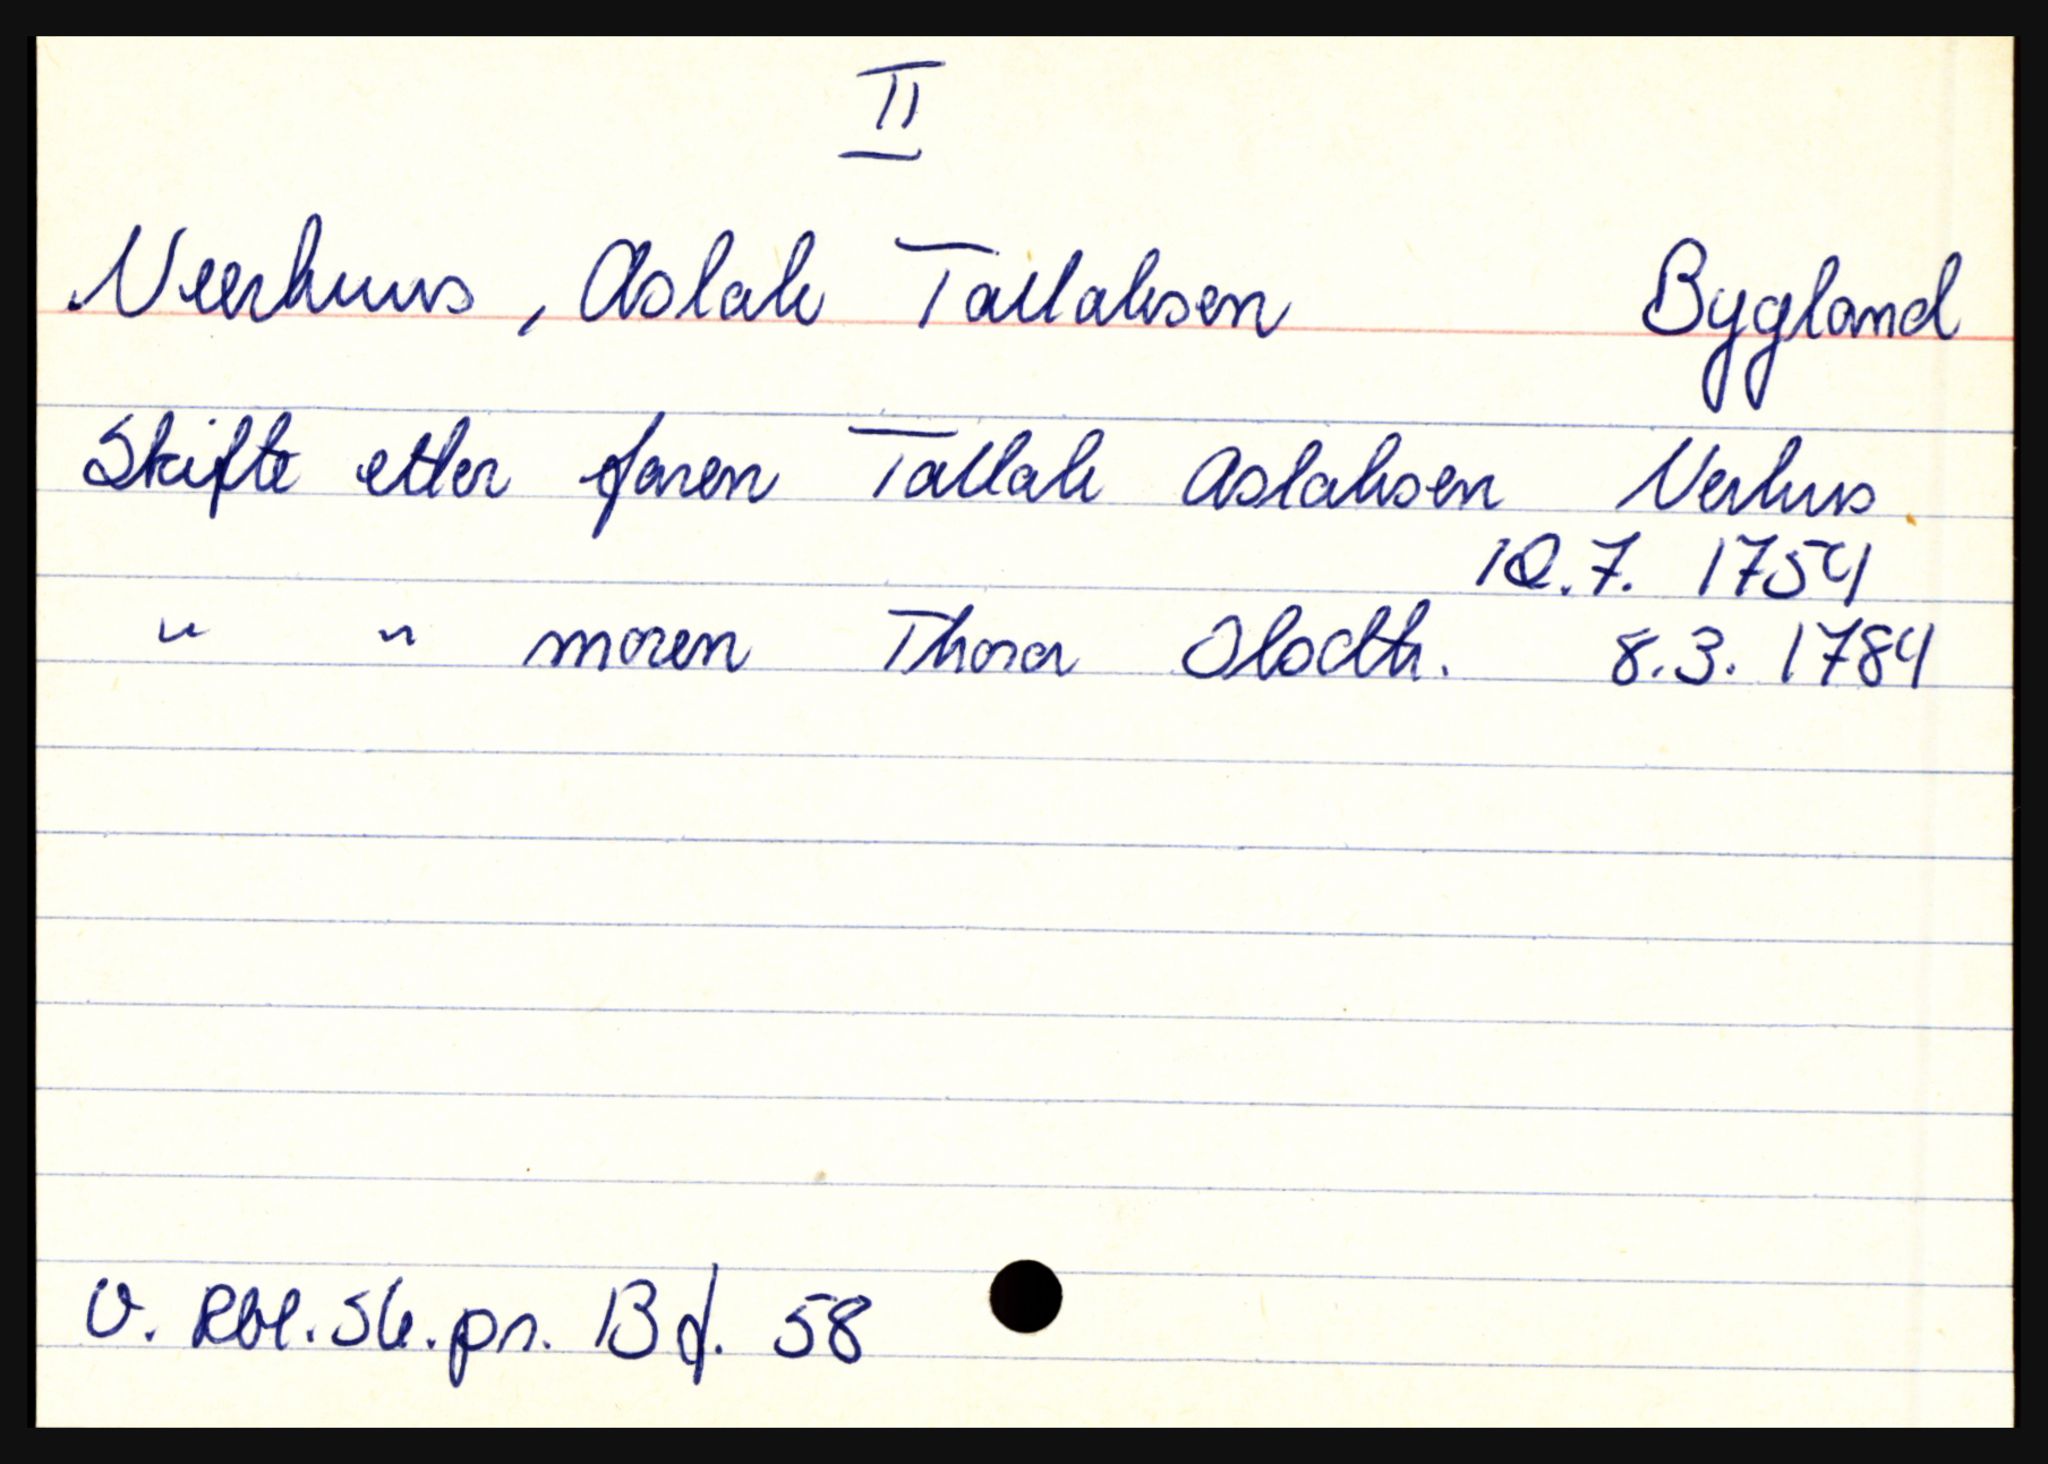 II
Neerhuus, Aslak Tallaksen Bygland
Skifte etter faren Tallak Aslaksen Nerhus
7. 1754
" " moren Thora 8.3. 1784
V. Rbl. Sk. pr. B f. 58